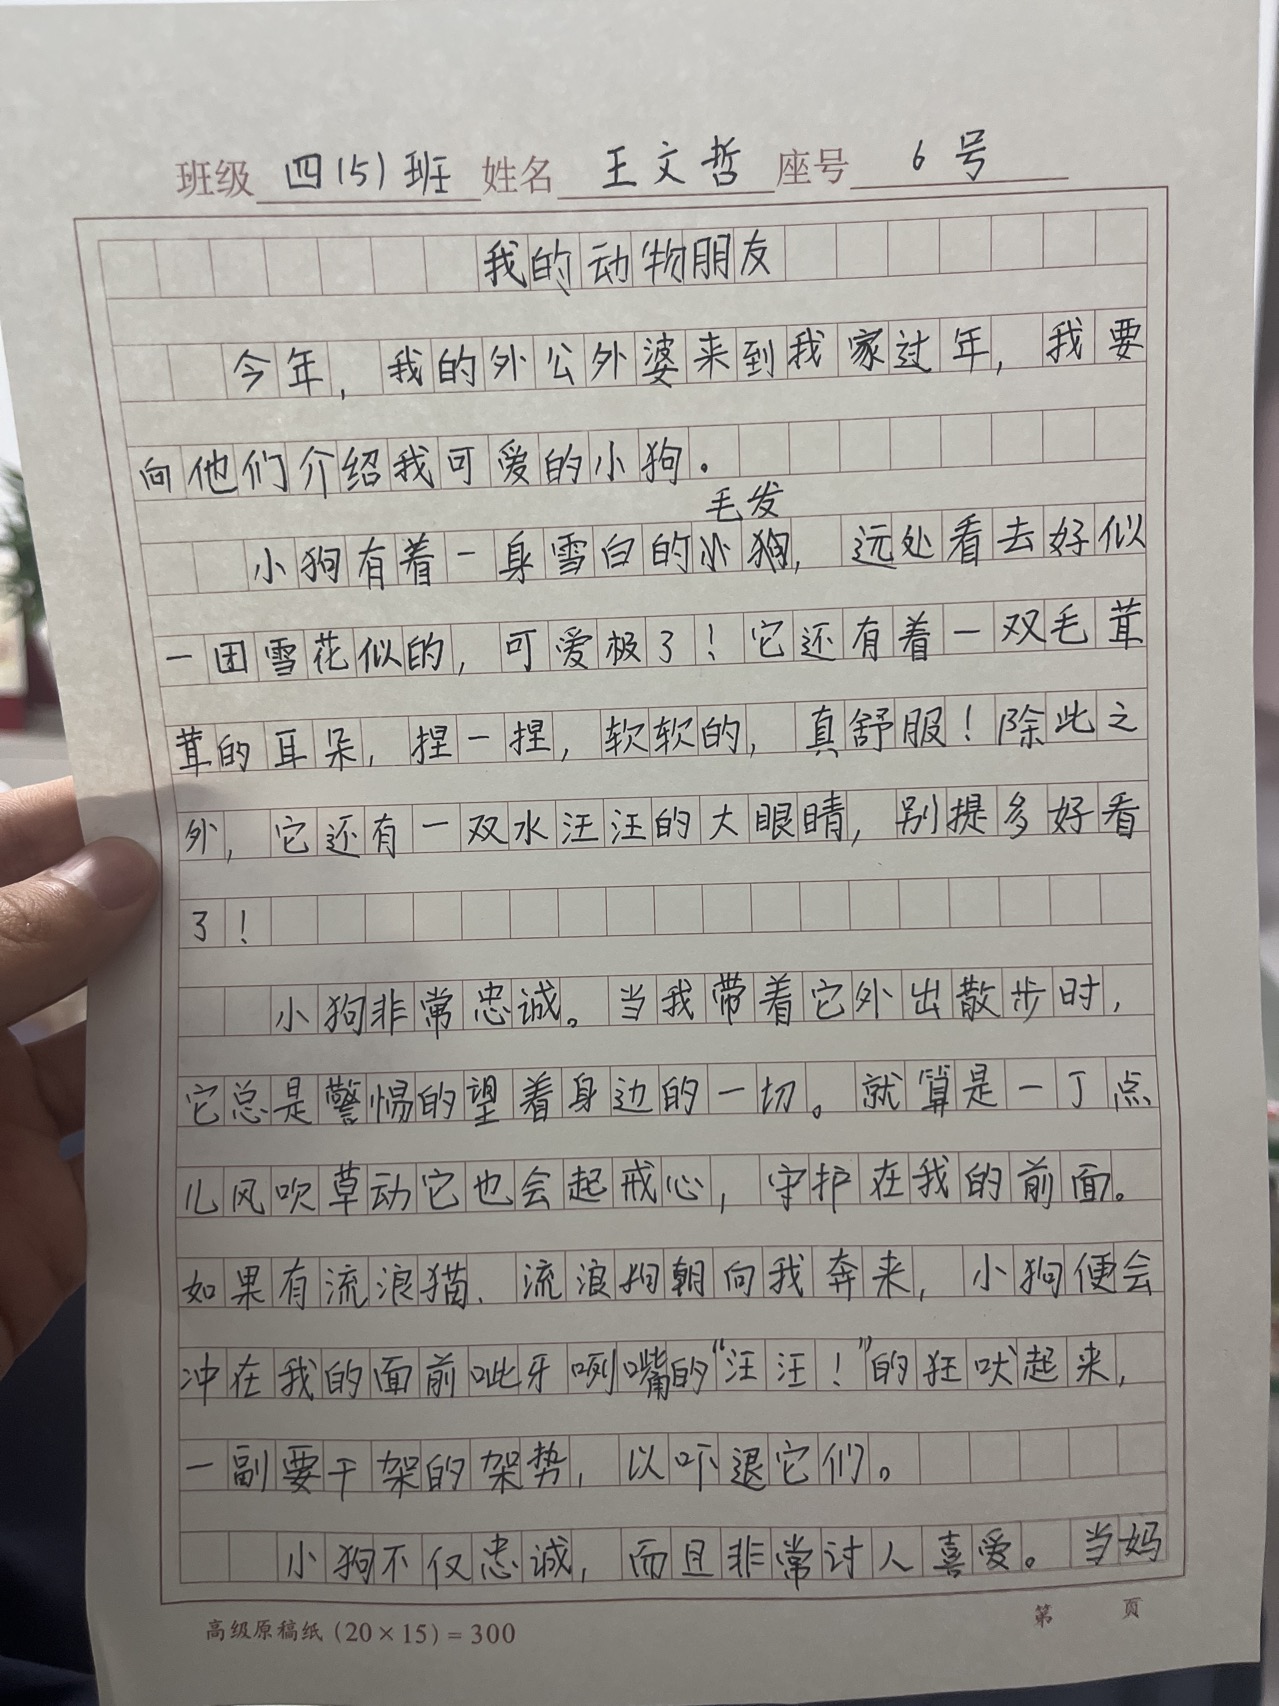 班级 四(5)班 姓名 王文哲 座号 6号
我的动物朋友
今年，我的外公外婆来到我家过年，我要
向他们介绍我可爱的小狗。
毛发
小狗有着一身雪白的小狗，远处看去好似
一团雪花似的，可爱极了！它还有着一双毛茸
茸的耳朵，捏一捏，软软的，真舒服！除此之
外，它还有一双水汪汪的大眼睛，别提多好看
了！
小狗非常忠诚。当我带着它外出散步时，
它总是警惕的望着身边的一切。就算是一丁点
儿风吹草动它也会起戒心，守护在我的前面。
如果有流浪猫、流浪狗朝向我奔来，小狗便会
冲在我的面前呲牙咧嘴的“汪汪！”的狂吠起来，
一副要干架的架势，以吓退它们。
小狗不仅忠诚，而且非常讨人喜爱。当妈
高级原稿纸（20×15）=300
第 页